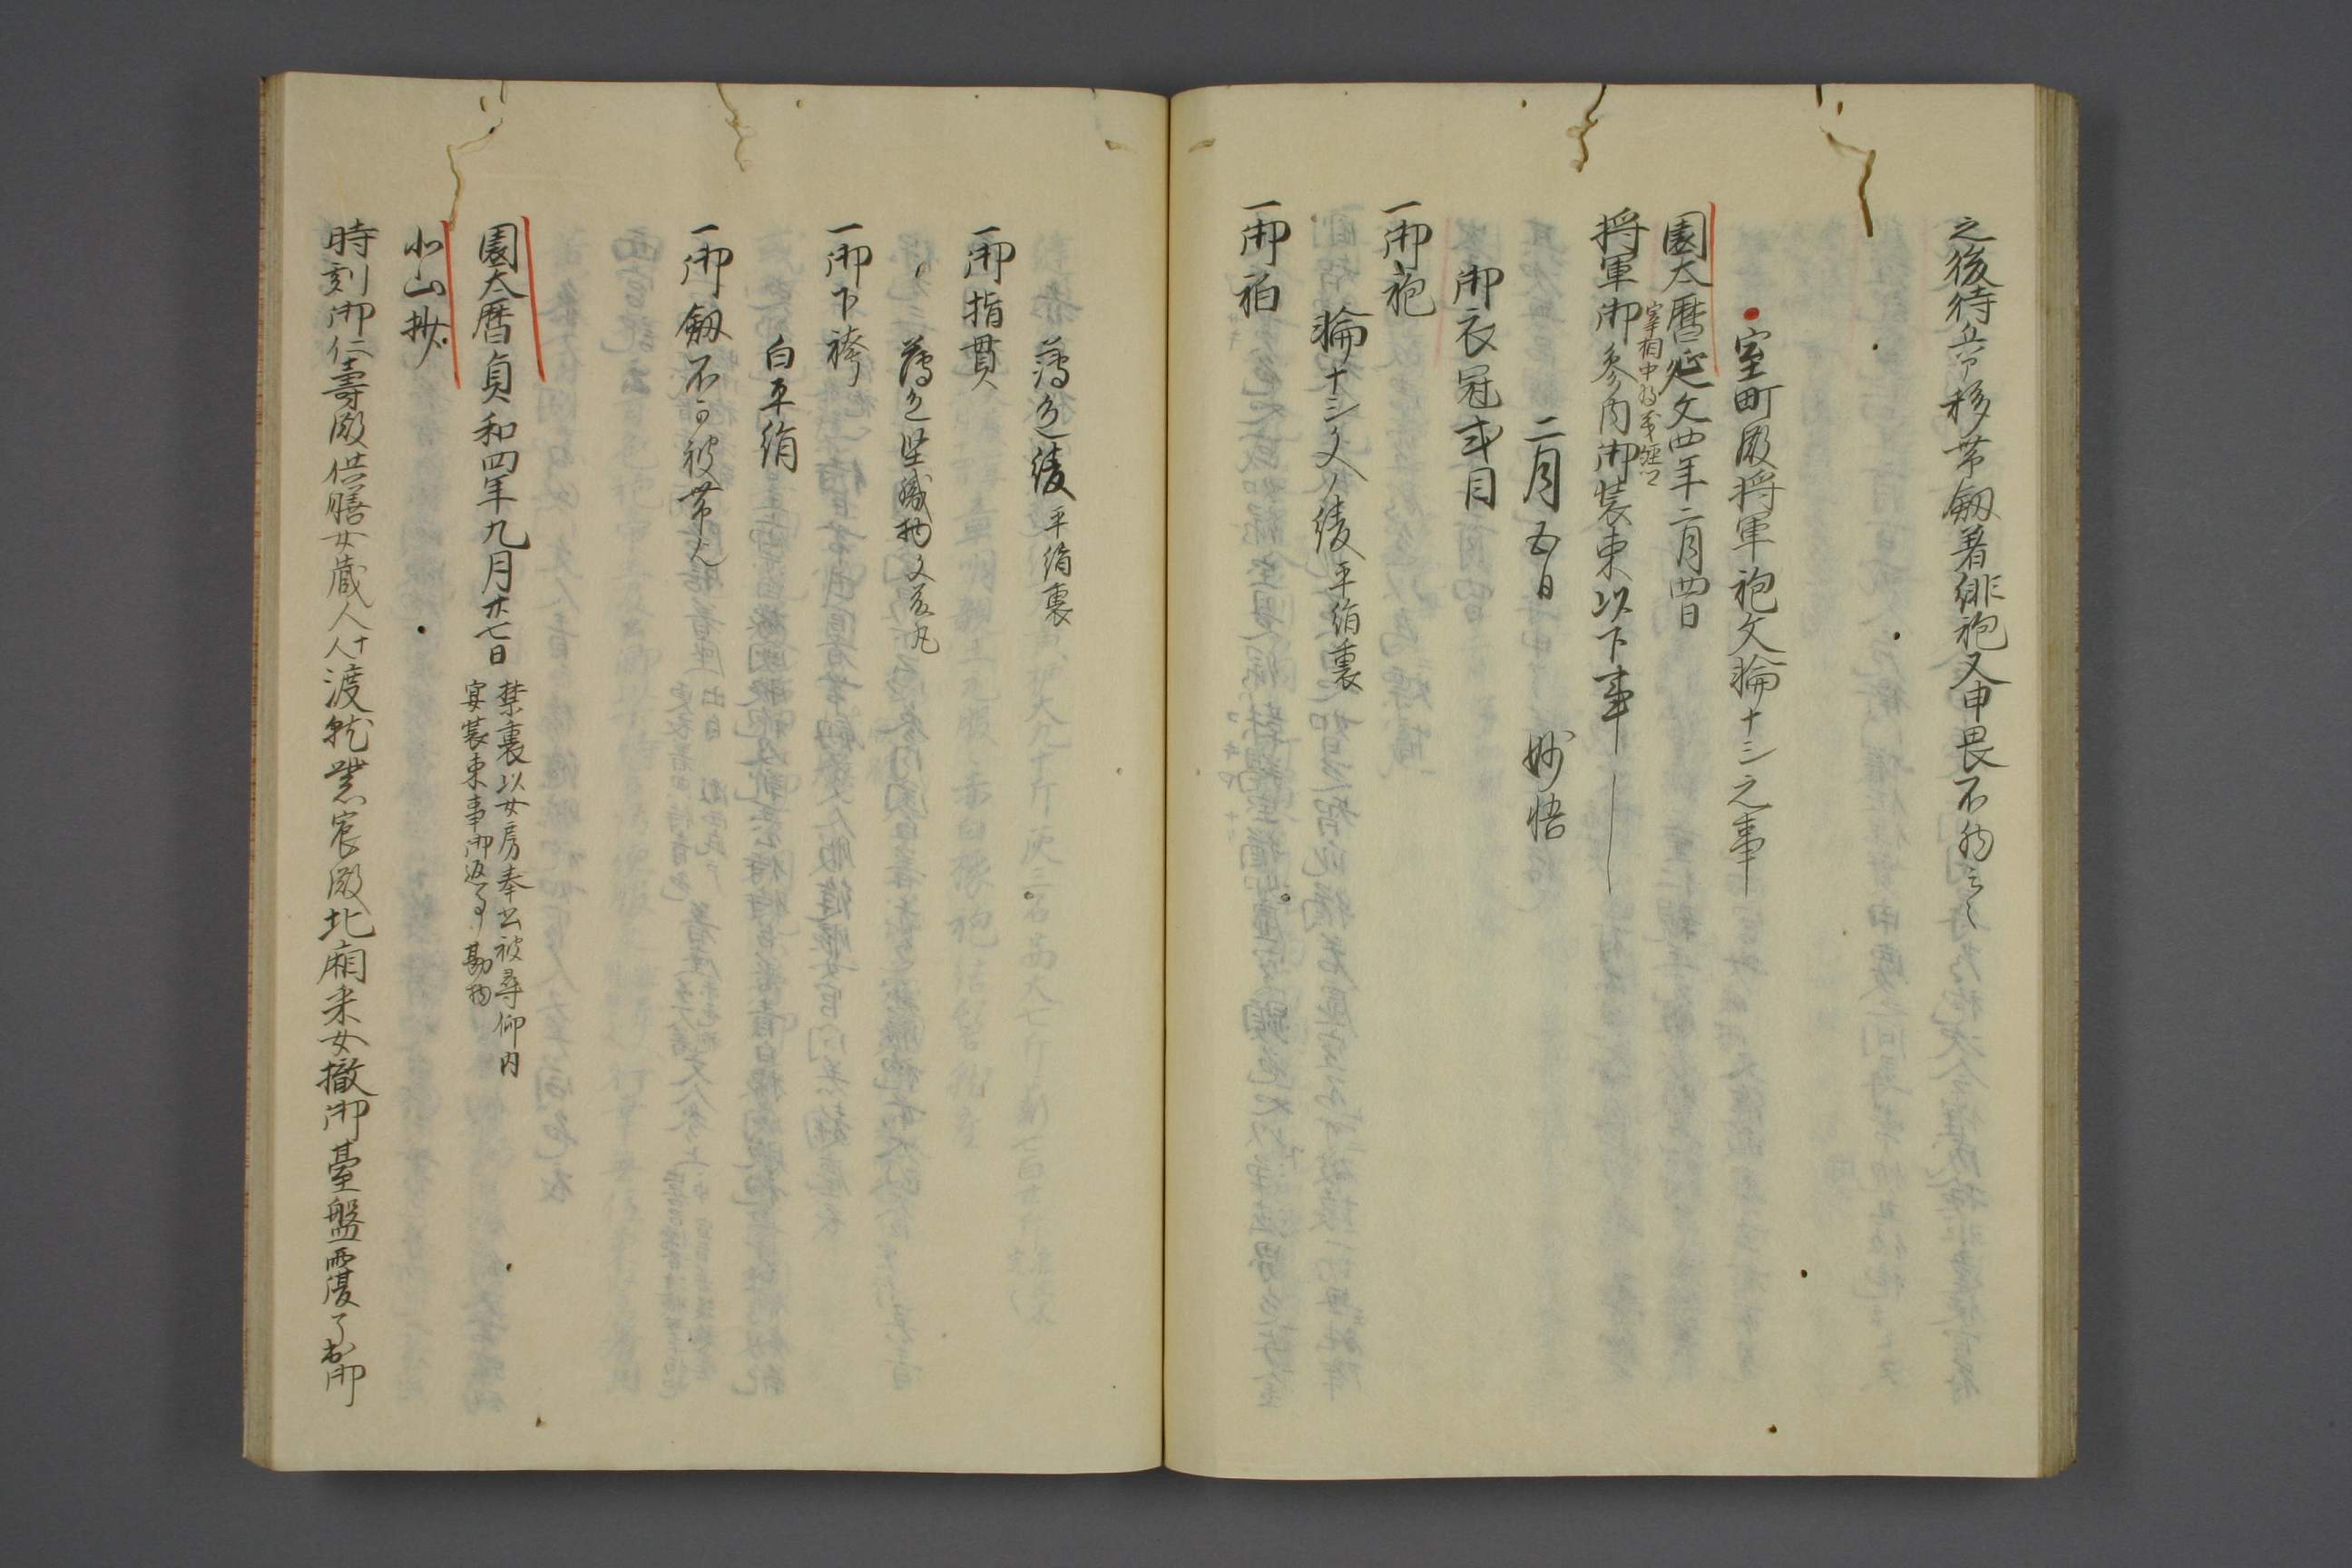 之後侍臣即移帯剱著緋袍又申畏不剱云々
室町殿将軍袍文輪十ミ之事
園太暦延文四年二月四日
宰相中将義詮
将軍御参内御装束以下事
二月五日　妙悟
御衣冠式目
一御袍
輪十ミ文ノ綾平絹裏
一御袙
薄色綾平絹裏
一御指貫
薄色堅織物文藤丸
一御下袴
白平絹
一御剱不可被帯之
園太暦貞和四年九月廿七日
禁裏以女房奉書被尋仰内
宴装束事御返事勘物
北山抄
時刻御仁壽殿供膳女蔵人八人十渡就紫宸殿北廂采女撤御臺盤覆了出御